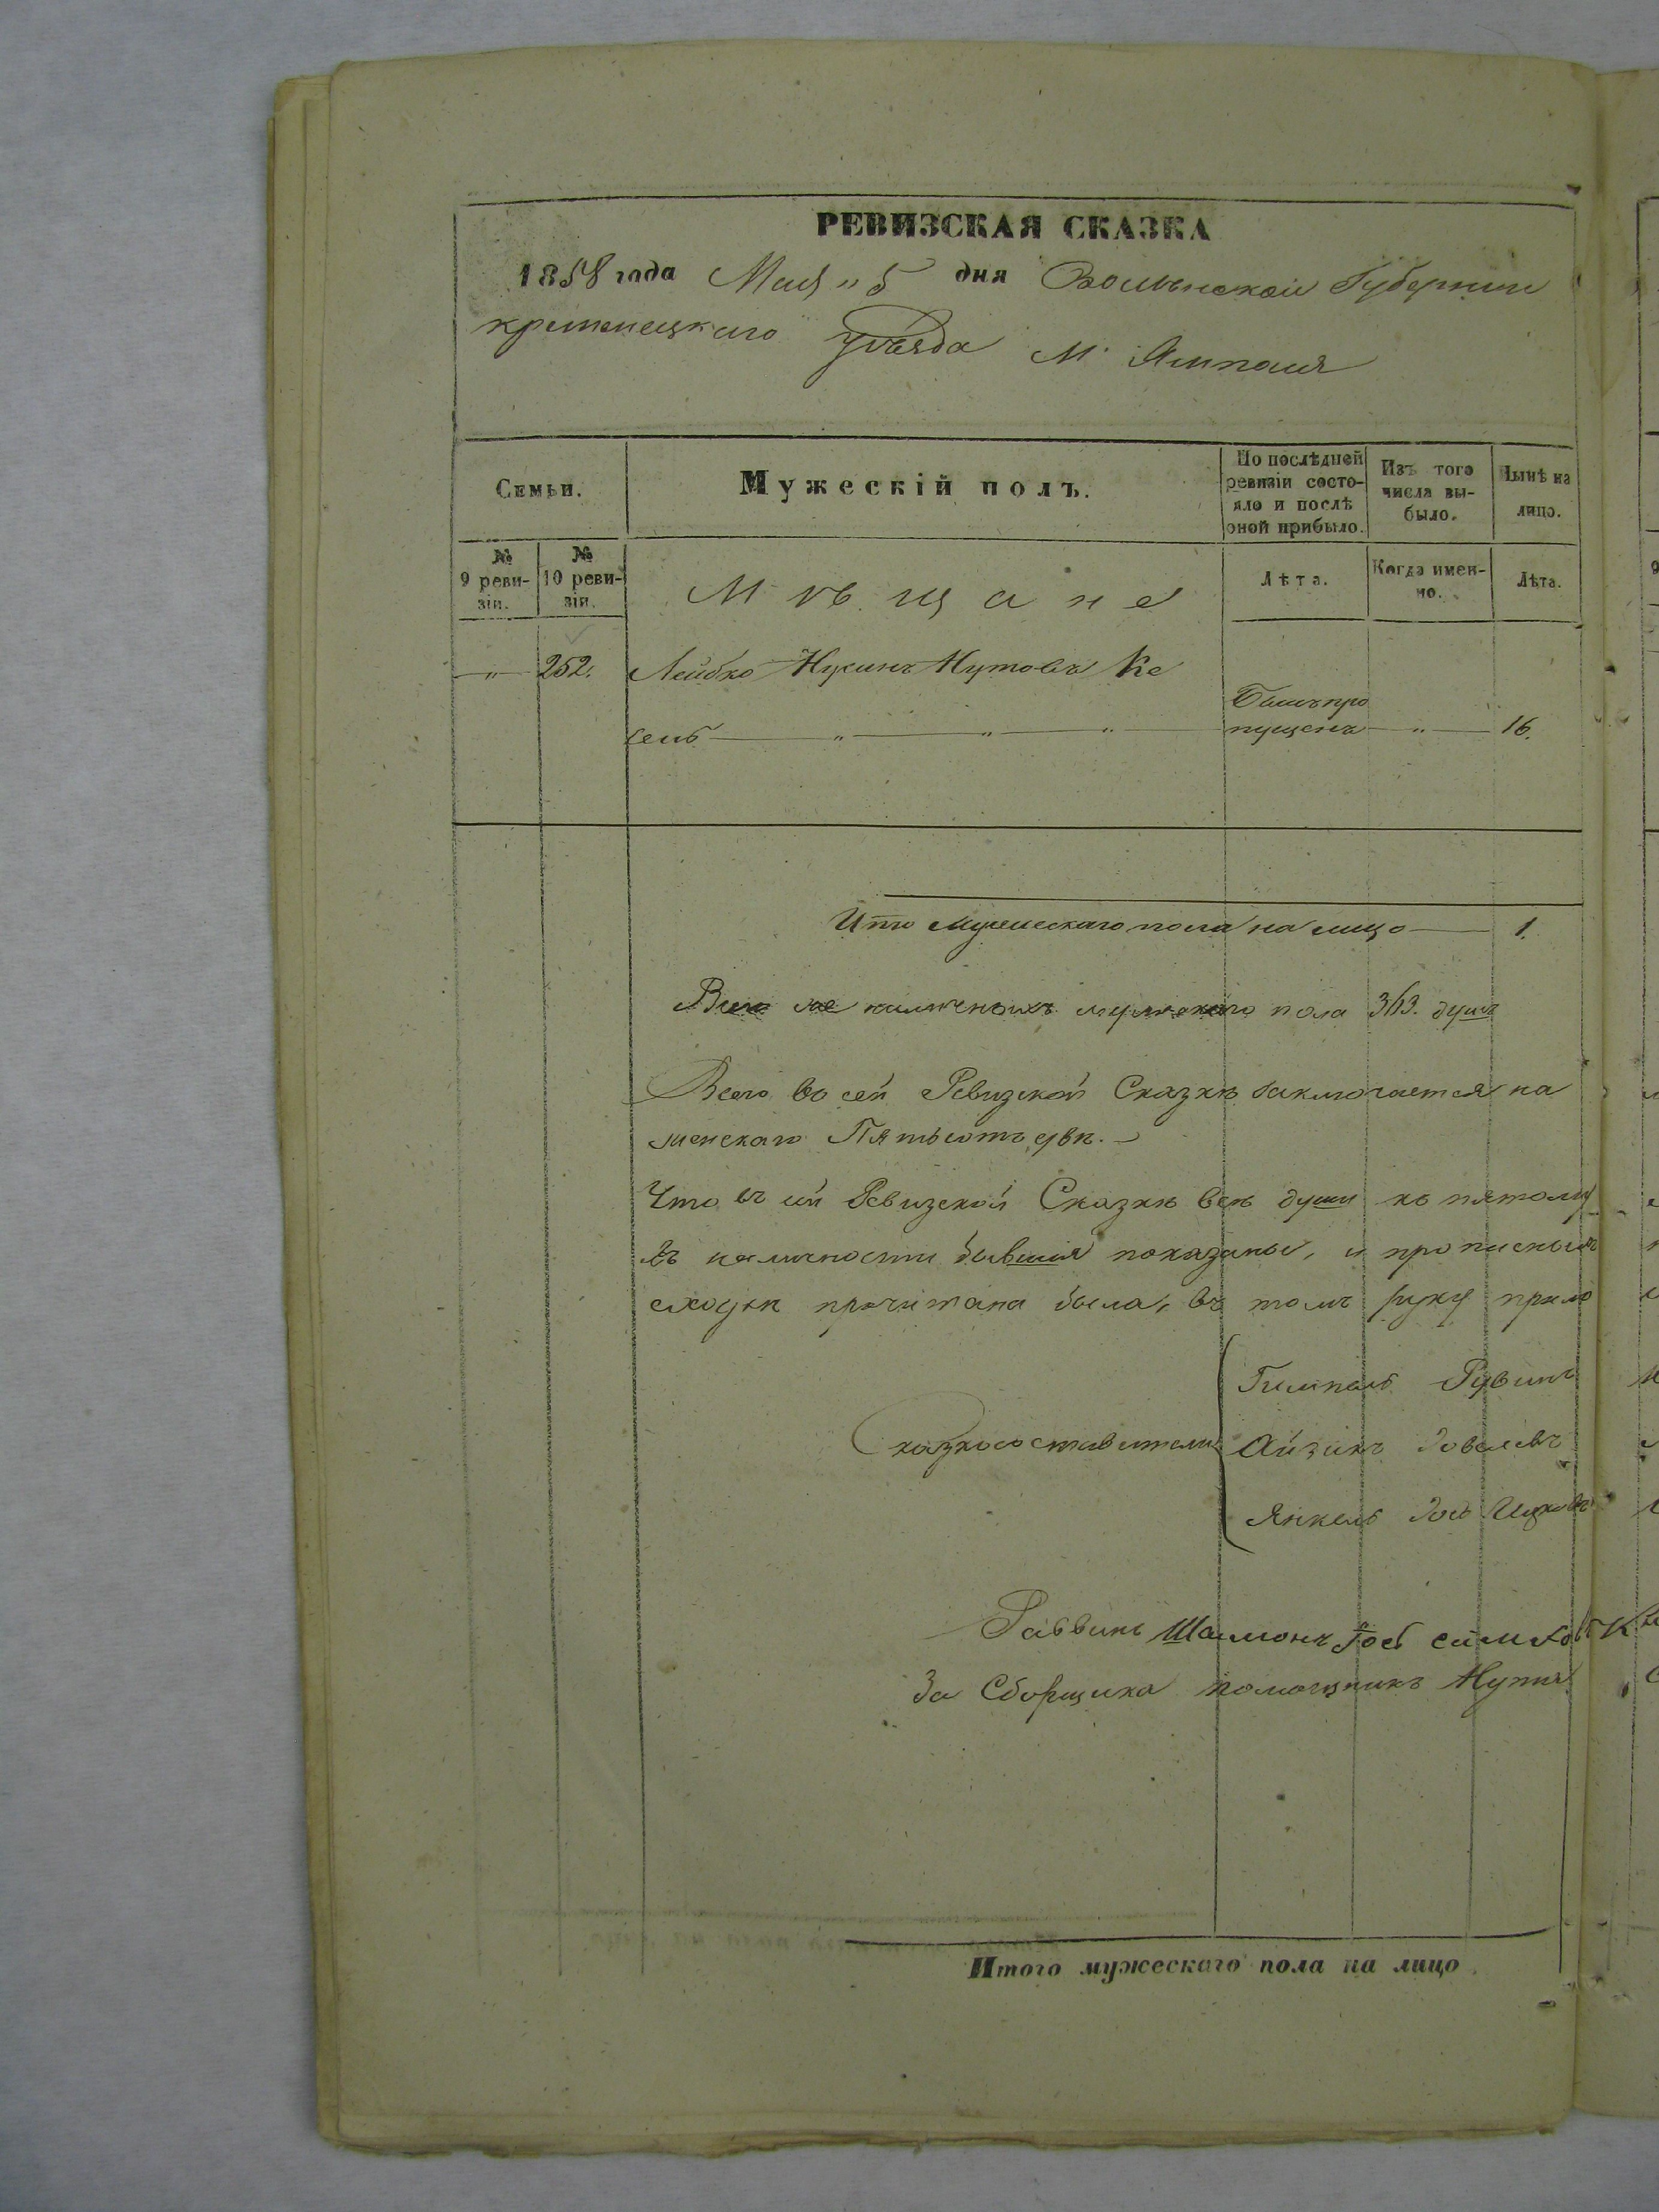 РЕВИЗСКАЯ СКАЗКА
1858 года Мая „ 5 дня Волынской Губернии
кременецкаго уѣзда М. Ямполя
Семьи.
Мужескій полъ.
По послѣдней ревизіи состо-
яло и послѣ оной прибыло.
Изъ того числа вы-
было.
Нынѣ на лицо.
№ 9 реви-
зіи.
№ 10 реви-
зіи.
Мѣщане
Лѣта.
Когда имен-
но.
Лѣта.
„ 252. Лейбко Нусинъ Нутовъ Ке
сель „ „ „ Былъ про
пущенъ „ 16.
Итого мужескаго пола на лицо 1.
наличныхъ мужскаго пола 363. душъ
Всего во сей Ревизской Сказкѣ заключается на
женскаго Пятьсотъ двѣ.
Что въ сей Ревизской Сказкѣ всѣ души къ пятому
въ наличности бывшія показаны, и прописныхъ
сходкѣ прочитана была, въ томъ руку прило
Сказкосоставители
Гимпель Рувинъ
Айзикъ Іовелевъ
Янкель Іось Ицковъ
Раввинъ Шаліонъ Іось
За Сборщика помощникъ
Итого мужескаго пола на лицо